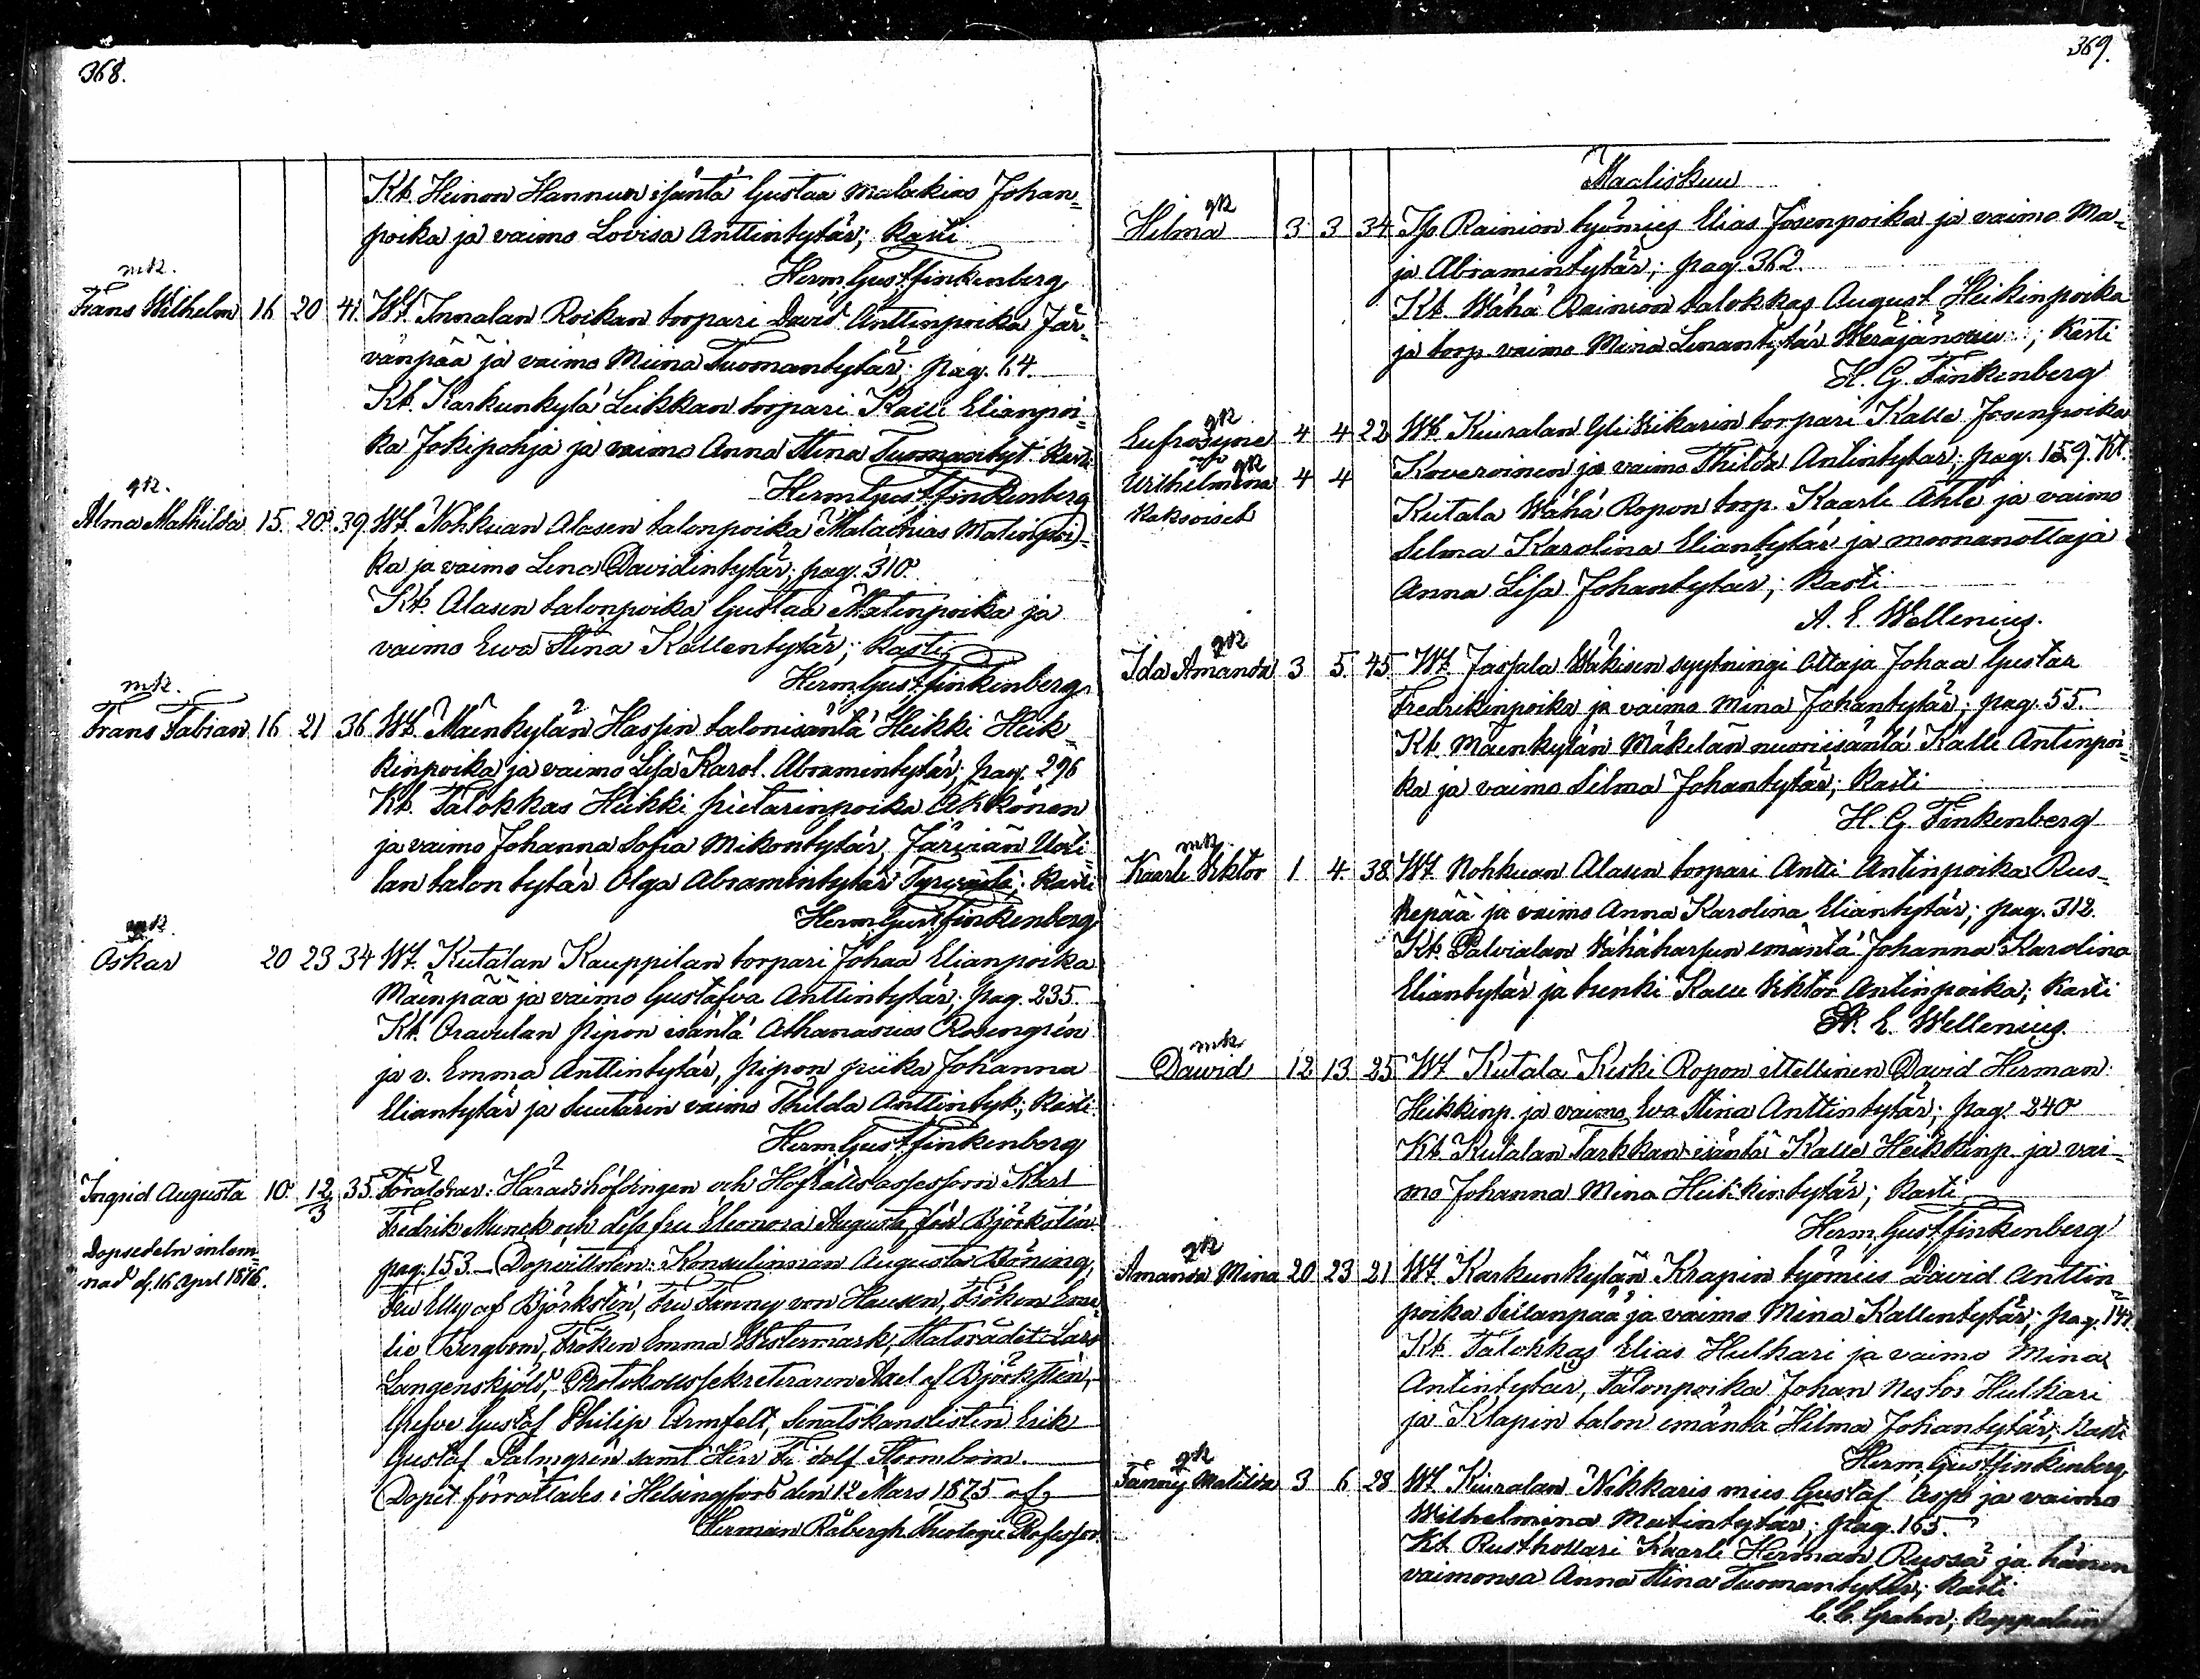 368.
Kt. Heinon Hannun isäntä Gustaa Malakias Johan=
poika ja vaimo Lovisa Anttintytär; Kasti
Herm. Gust. Finkenberg
mk.
Frans Wilhelm 16 20 41. Wt. Innalan Roikan torpari David Anttinpoika Jär=
vänpää ja vaimo Miina Tuomantytär; pag. 14.
Kt. Karkunkylä Leikkan torpari Kalle Elianpoi=
ka Jokipohja ja vaimo Anna Stina Tuomantyt. Kasti
Herm. Gust. Finkenberg
qk.
Alma Mathilda 15. 20. 39. Wt. Nohkuan Alasen talonpoika Malachias Matinpoi=
ka ja vaimo Lena Davidintytär; pag. 310.
Kt. Alasen talonpoika Gustaa Matinpoika ja
vaimo Ewa Stina Kallentytär; Kasti
Herm. Gust. Finkenberg
mk.
Frans Fabian 16 21 36 Wt. Mäenkylän Hassin talonisäntä Heikki Heik=
kinpoika ja vaimo Lisa Karol. Abramintytär; pag. 296
Kt. Talokkas Heikki pietarinpoika
ja vaimo Johanna Sofia Mikontytär, Järvian Uoti=
lan talon tytär Olga Abramintytär Tyrväästä; Kasti
Herm. Gust. Finkenberg
mk.
Oskar 20 23 34 Wt. Kutalan Kauppilan torpari Johaa Elianpoika
Mäenpää ja vaimo Gustafva Anttintytär; pag. 235.
Kt. Oravulan Pipon isäntä Athanasius Rosengrén
ja v. Emma Anttintytär, Pipon piika Johanna
Eliantytär ja Suutarin vaimo Thilda Anttintyt.; Kasti
Herm. Gust. Finkenberg
Ingrid Augusta 10. 12/3 35. Föräldrar: Häradshöfdingen och Hofrättsassessorn Karl
Fredrik Munck och dess fru Eleonora Augusta, född Björkstén.
Dopsedeln inlem=
nad d. 16 April 1876.
pag. 153. Dopvittnen: Konsulinnan Augusta Böning,
Fru Elly af Björkstén, Fru Fanny von Hausen, Fröken Emi=
lie Bergbom, Fröken Emma Westermark, Statsrådet Lars
Langenskjöld, Protokollssekreteraren Axel af Björkstén,
Grefve Gustaf Philip Armfelt, Senatskanslisten Erik
Gustaf Palmgren samt Herr Fidolf Stormbom.
Dopet förrättades i Helsingfors den 12 Mars 1875 af
Herman Råbergh Theologie Professor.
369.
Maaliskuu
qk
Hilma 3 3 34 Rainion työmies Elias Josenpoika ja vaimo Ma=
ja Abramintytär; pag. 362.
Kt. Wähä Rainion talokkas August Heikinpoika
ja torp. vaimo Mina Leenantytär; Kasti
H. G. Finkenberg
qk
Eufrosyne 4 4 22 Wt. Kiuralan Yli torpari Kalle Josenpoika
qk
Wilhelmina 4 4 Koveroinen ja vaimo Thilda Antintytär; pag. 159. Kt.
Kaksoiset
Kutala Wähä Ropon torp. Kaarle Ahle ja vaimo
Selma Karolina Eliantytär ja moonanottaja
Anna Lisa Johantytär; Kasti
A. E. Wellenius.
qk
Ida Amanda 3 5. 45 Wt. Jassala Wäkisen syytningi ottaja Johaa Gustaa
Fredrikinpoika ja vaimo Mina Johantytär; pag. 55.
Kt. Mäenkylän Mäkelän nuoriisäntä Kalle Antinpoi=
ka ja vaimo Silma Johantytär; Kasti
H. G. Finkenberg
mk.
Kaarle Viktor 1. 4. 38. Wt. Nohkuan Alasen torpari Antti Antinpoika Rus=
kepää ja vaimo Anna Karolina Eliantytär; pag. 312.
Kt. Palvialan Vähäharsun emäntä Johanna Karolina
Eliantytär ja trenki Kalle Viktor Antinpoika; Kasti
A. E. Wellenius.
mk
Dawid 12 13 25 Wt. Kutala Keski Ropon itellinen David Herman
Heikkinp. ja vaimo Eva Stina Anttintytär; pag. 240
Kt. Kutalan Sarkkan isäntä Kalle Heikkinp. ja vai=
mo Johanna Mina Heikkintytär; Kasti
Herm. Gust. Finkenberg
qk
Amanda Mina 20 23 21 Wt. Karkunkylän Krapin työmies David Anttin
poika Sillanpää ja vaimo Mina Kallentytär; pag. 142.
Kt. Talokkas Elias Hulkari ja vaimo Mina
Antintytär, Talonpoika Johan Nestor Hulkari
ja Krapin talon emäntä Hilma Johantytär; Kasti
Herm. Gust. Finkenberg
qk
Fanny Matilda 3 6 28 Wt. Kiuralan Nikkaris mies Gustaf Asp ja vaimo
Wilhelmina Matintytär; pag. 165.
Kt. Rusthollari Kaarle Herman Russa ja hänen
vaimonsa Anna Stina Tuomantytär; Kasti
C. C. Grahn, Kappalain